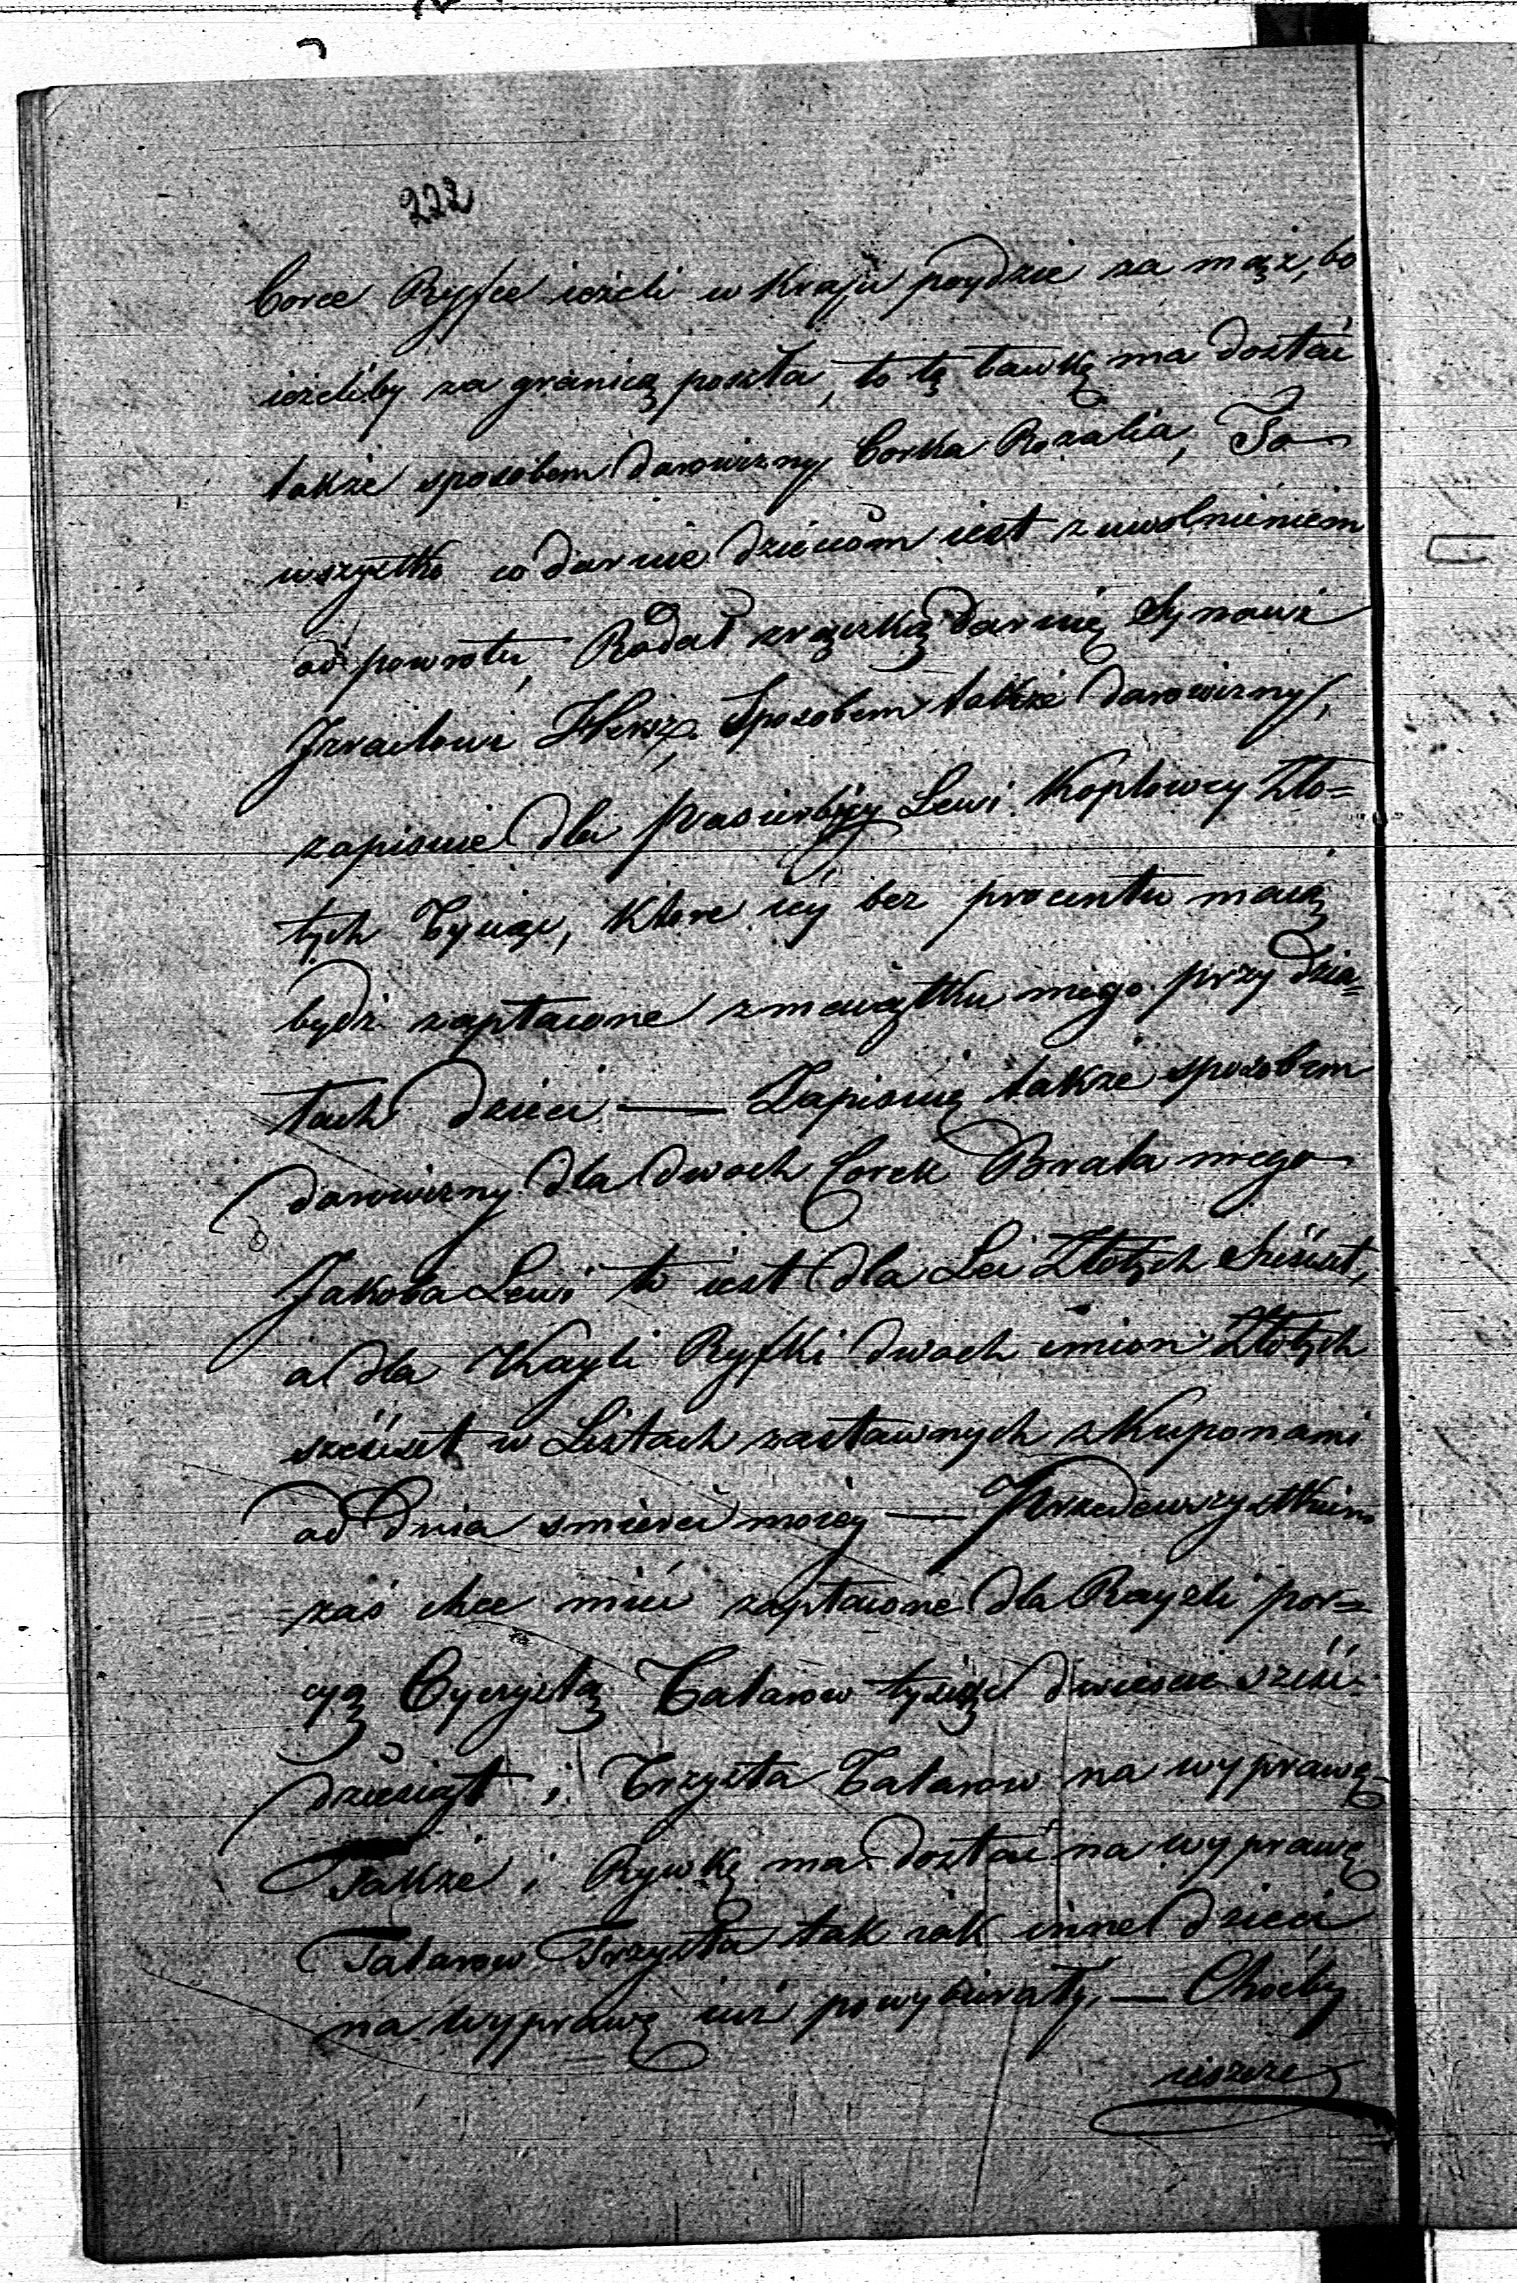 222
Corce Ryfce ieżeli w Kraju poydzie za mąż, bo
ieżeliby za granicą poszła, to tę ławkę ma dostać
także sposobem darowizny Corka Rozalia, To
wszystko co daruię dzieciom iest z uwolnieniem
od powrotu, Rodał z rączką daruię Synowi
Izraelowi Hersz, Sposobem także darowizny,
zapisuię dla Pasierbicy Lewi Koplowey Zło=
tych Tysiąc, które iey bez procentu maią
bydź zapłacone z maiątku mego przy dzia=
łach dzieci — Zapisuię także sposobem
darowizny dla dwoch Corek Brata mego
Jakoba Lewi to iest dla Lei Złotych Sześćset,
a dla Kayli Ryfki dwoch imion Złotych
sześćset w Listach zastawnych z Kuponami
od dnia smierci moiey — Przedewszystkiem
zaś chce mieć zapłacone dla Rayzli por=
cyą Czystą Talarow tysiąc dwieście sześć=
dziesiąt i Trzysta Talarow na wyprawę
Także i Rywkę ma dostać na wyprawę
Talarow Trzysta tak iak inne dzieci
na wyprawę iuż powybierały. — Choćby
ieszcze